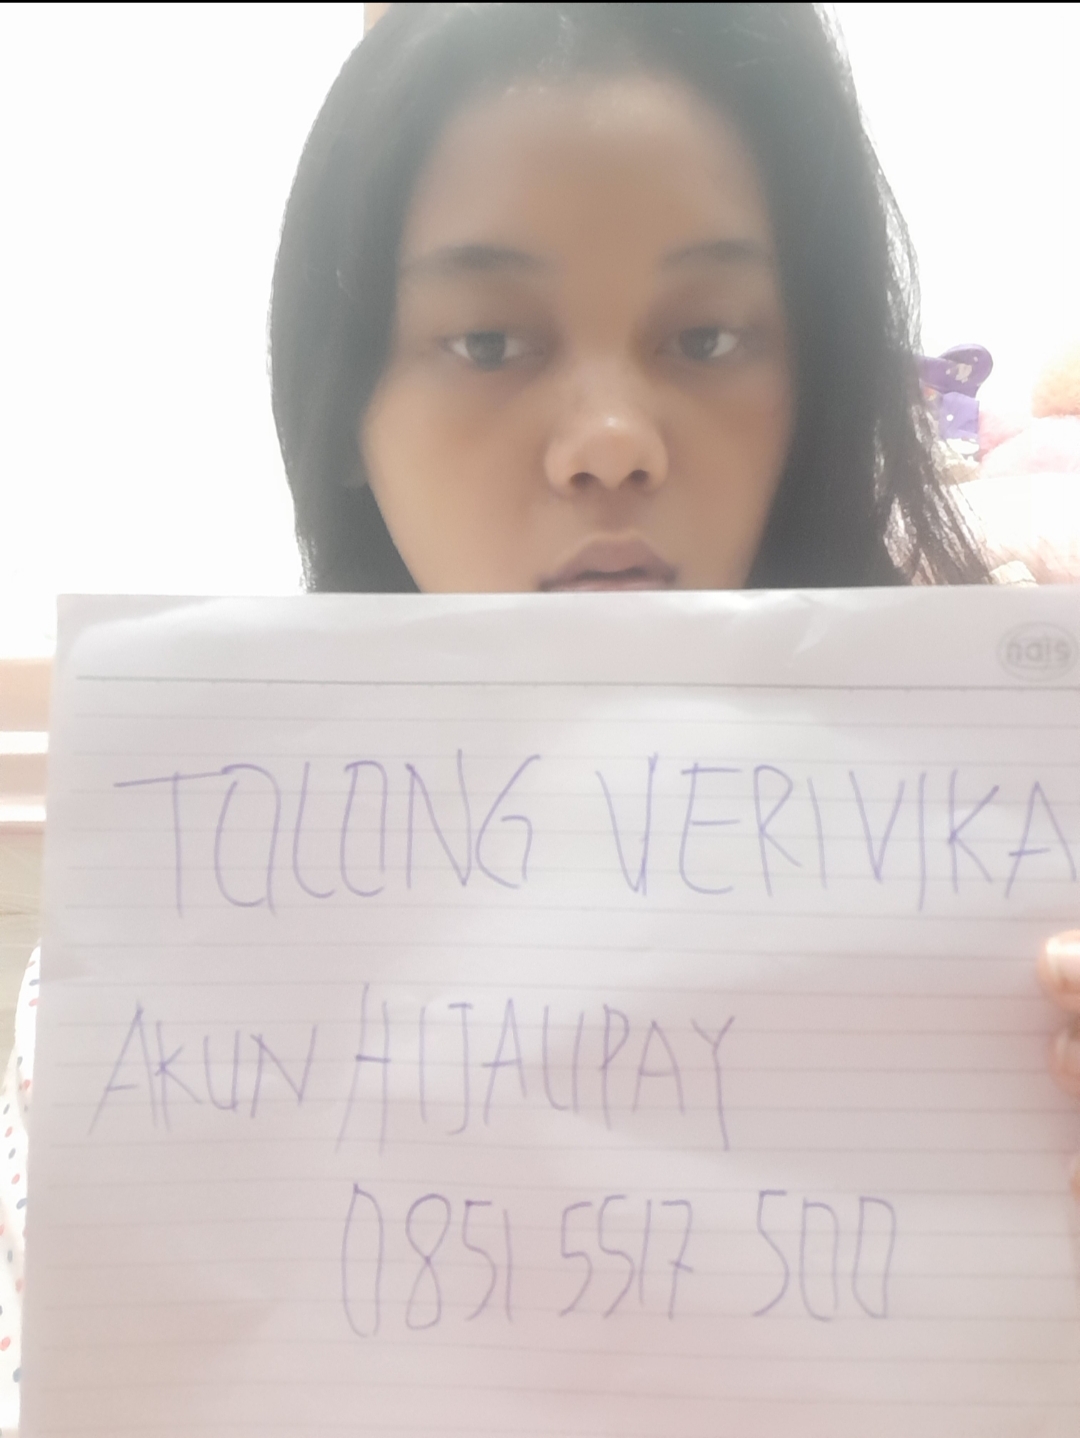 TOLONG VERIVIKA
AKUN HIJAUPAY
0851 5517 500